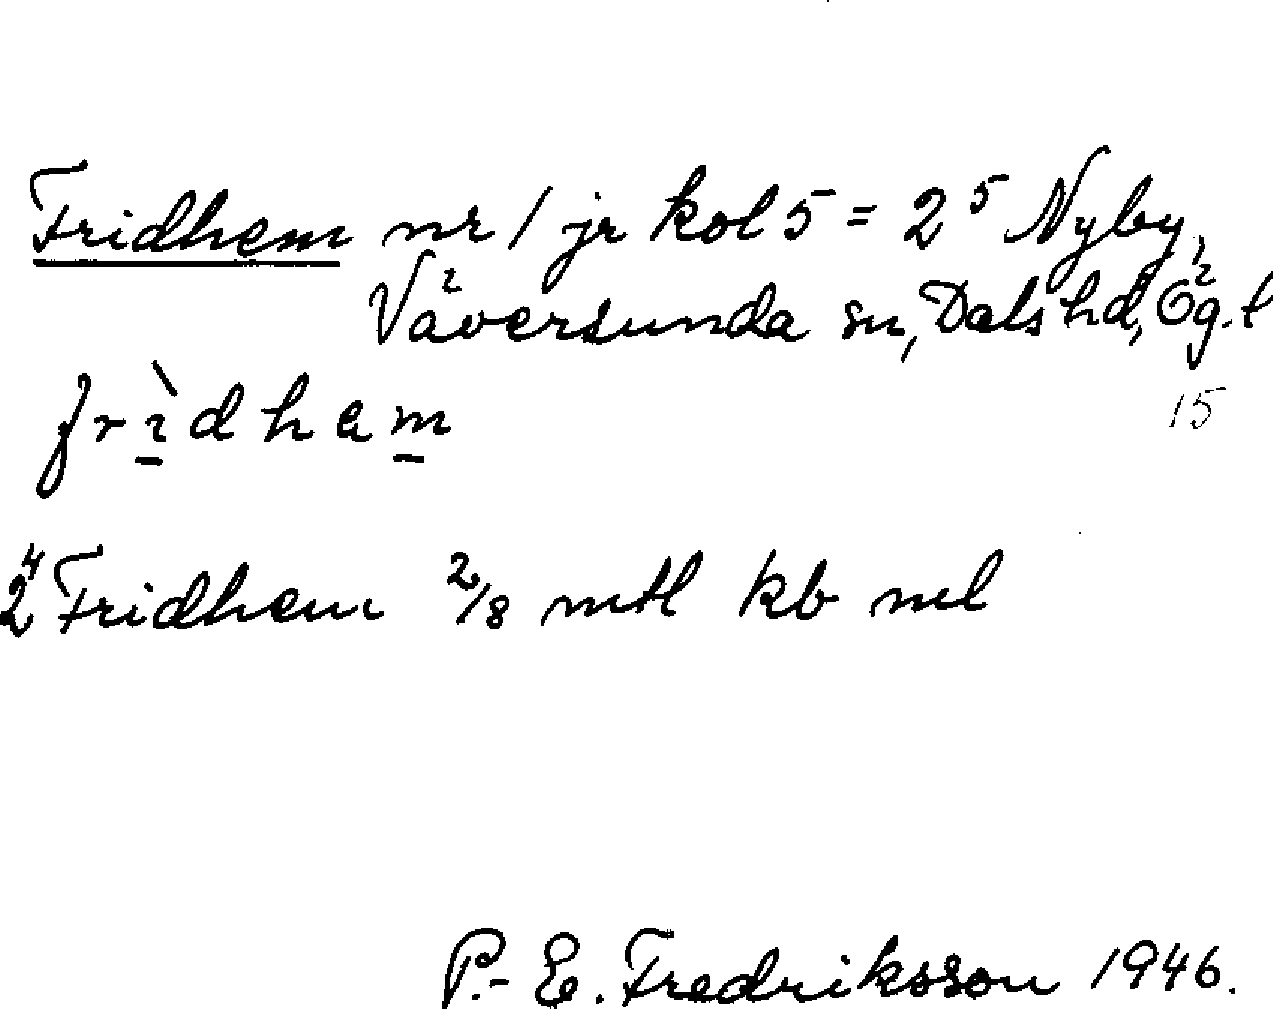 Fridhem nr 1 jr kol 5 = 2⁵ Nyby,
Väversunda sn, Dals hd, Ög. l
frìdham
15
2⁴ Fridhem 2/8 mtl kb ml
P.-E. Fredriksson 1946.